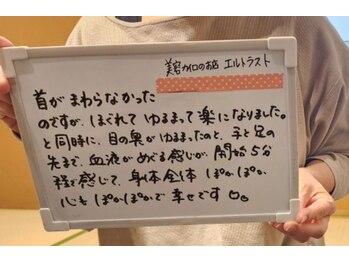 美容カイロのお店 エルトラスト
首がまわらなかった
のですが、ほぐれて ゆるまって楽になりました。
と同時に、目の奥がゆるまったのと、手と足の
先まで、血液がめぐる感じが、開始5分
程で感じて、身体全体 ぽかぽか、
心もぽかぽかで幸せです